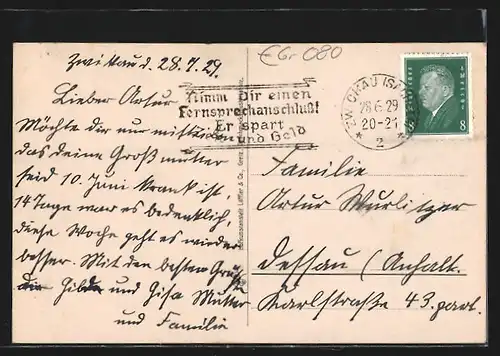 Zwickau d. 28.7.29.
Lieber Artur
Möchte dir nur mitteilen
das deine Großmutter
seid 10. Juni krank ist,
14 Tage war es bedenklich,
diese Woche geht es wieder
besser. Mit den besten Grüßen
Hilde und Gisa Mutter
und Familie
€Gr 080
Nimm Dir einen
Fernsprechanschluß!
Er spart
und Geld
ZWICKAU (SA
28.6.29
20-21
* 2 *
8 8
Familie
Artur Wurlitzer
Dessau (Anhalt.
Karlstraße 43. part.